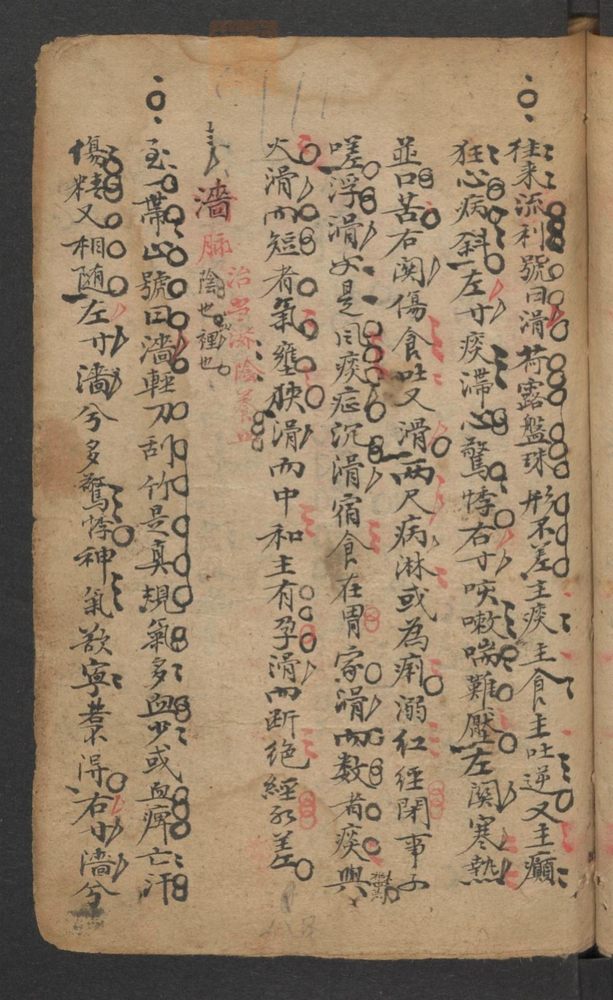 往来流利號曰滑荷露盤珠形不差主痰主食主吐逆又主癲
狂心病斜左寸痰滞心驚悸右寸咳嗽喘難壓左関寒熱
並口苦右関傷食吐又滑両尺病淋或為痢溺红經閉事子
嗟浮滑必是风痰症沉滑宿食在胃家滑而数者痰興
火滑而短者氣壅腴滑而中和主有孕滑而断绝經水差
濇脉陰也裡也
治当济陰養血
至濇帯止號曰濇軽刀刮竹是真規氣多血少或血痺亡汗
傷精又相随左寸濇兮多驚悸神氣歆寧若不得右寸濇兮